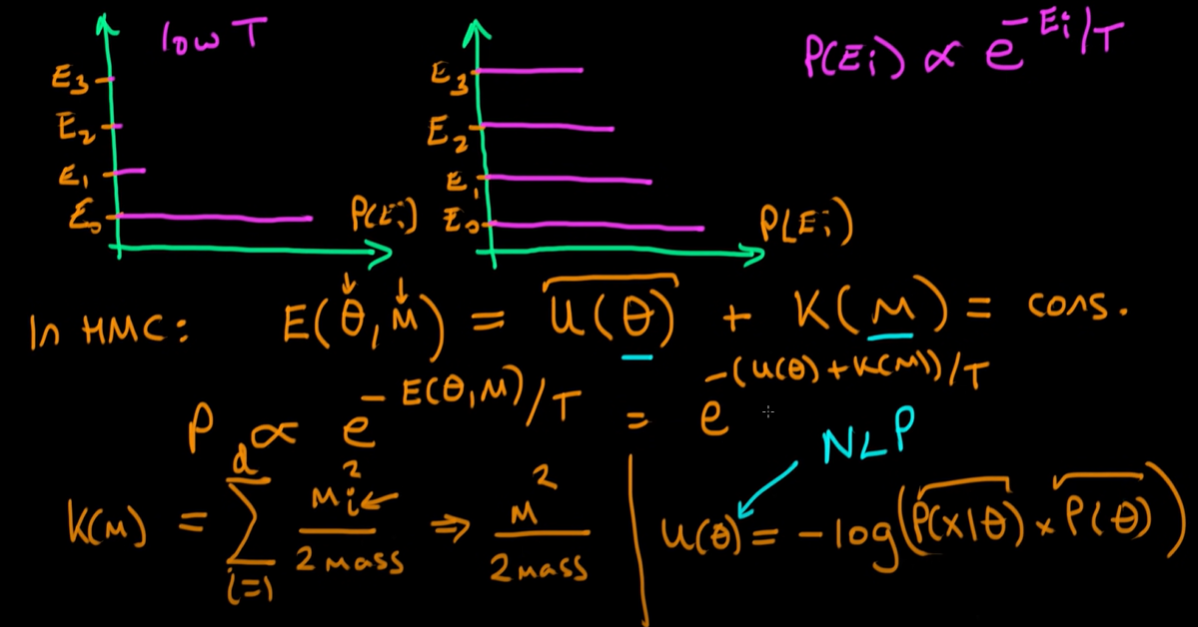 low T
P(Ei) ∝ e^-Ei/T
E3
E2
E1
E0
P(Ei)
E3
E2
E1
E0
P(Ei)
In HMC: E(θ, M) = U(θ) + K(M) = cons.
P ∝ e^-E(θ,M)/T = e^-(U(θ)+K(M))/T
NLP
K(M) = ∑_{i=1}^{d} Mi^2 / 2 mass ⇒ M^2 / 2 mass
U(θ) = -log(P(X|θ) × P(θ))